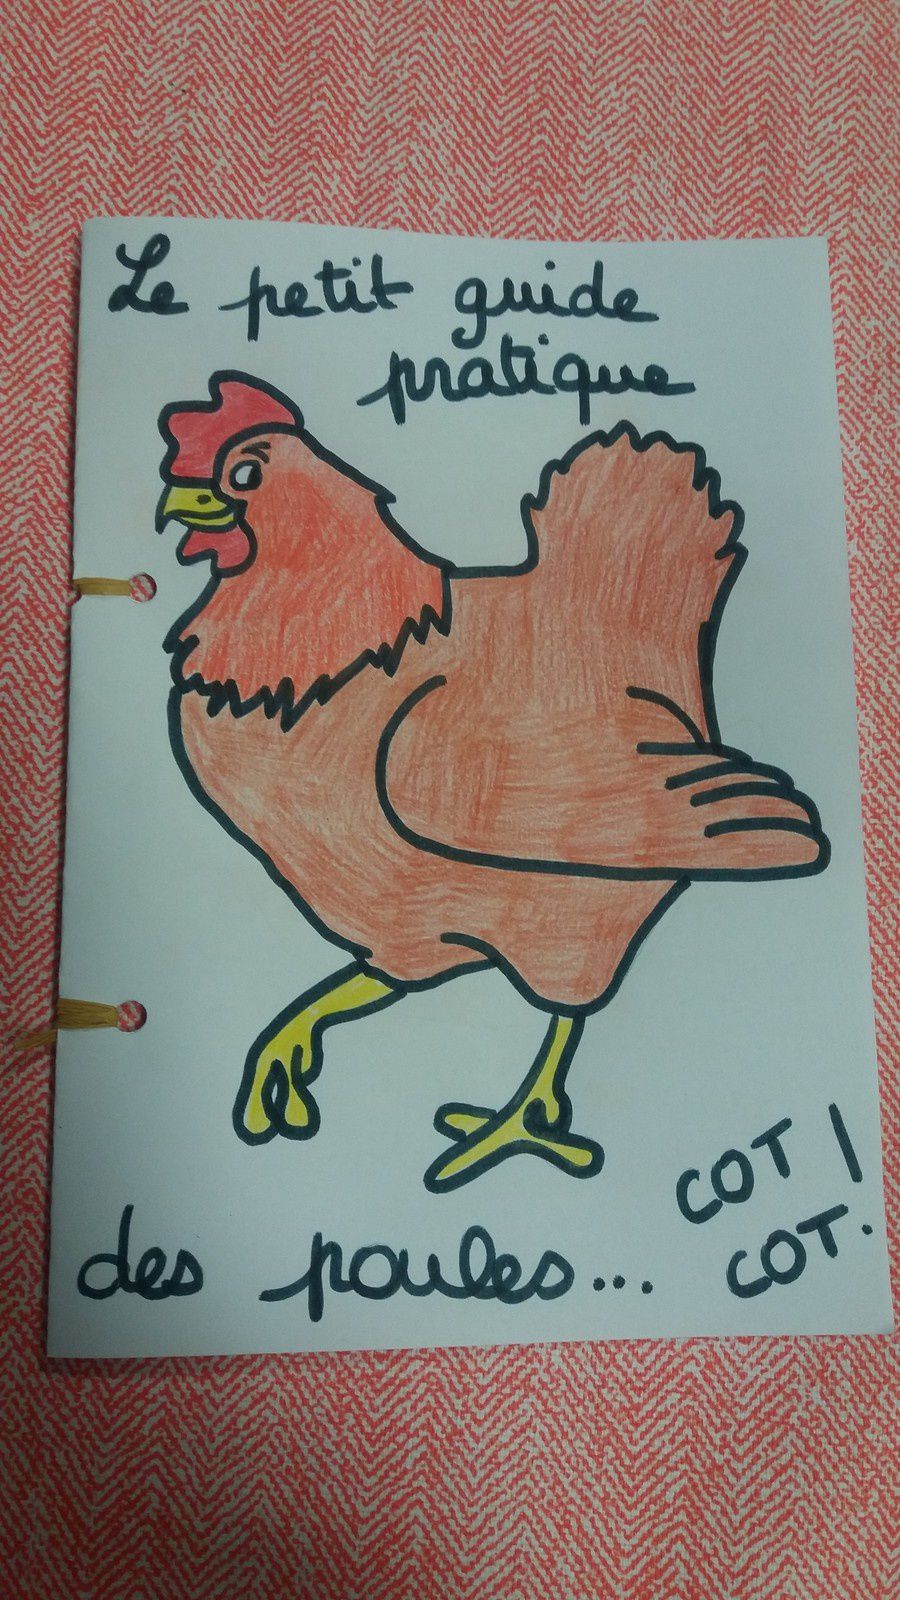 Le petit guide
pratique
COT !
COT.
des poules...